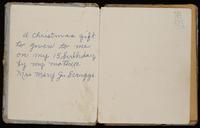 A Christmas gift
to given to me
on my 15 birthday
by my mother
Mrs Mary J. Scruggs